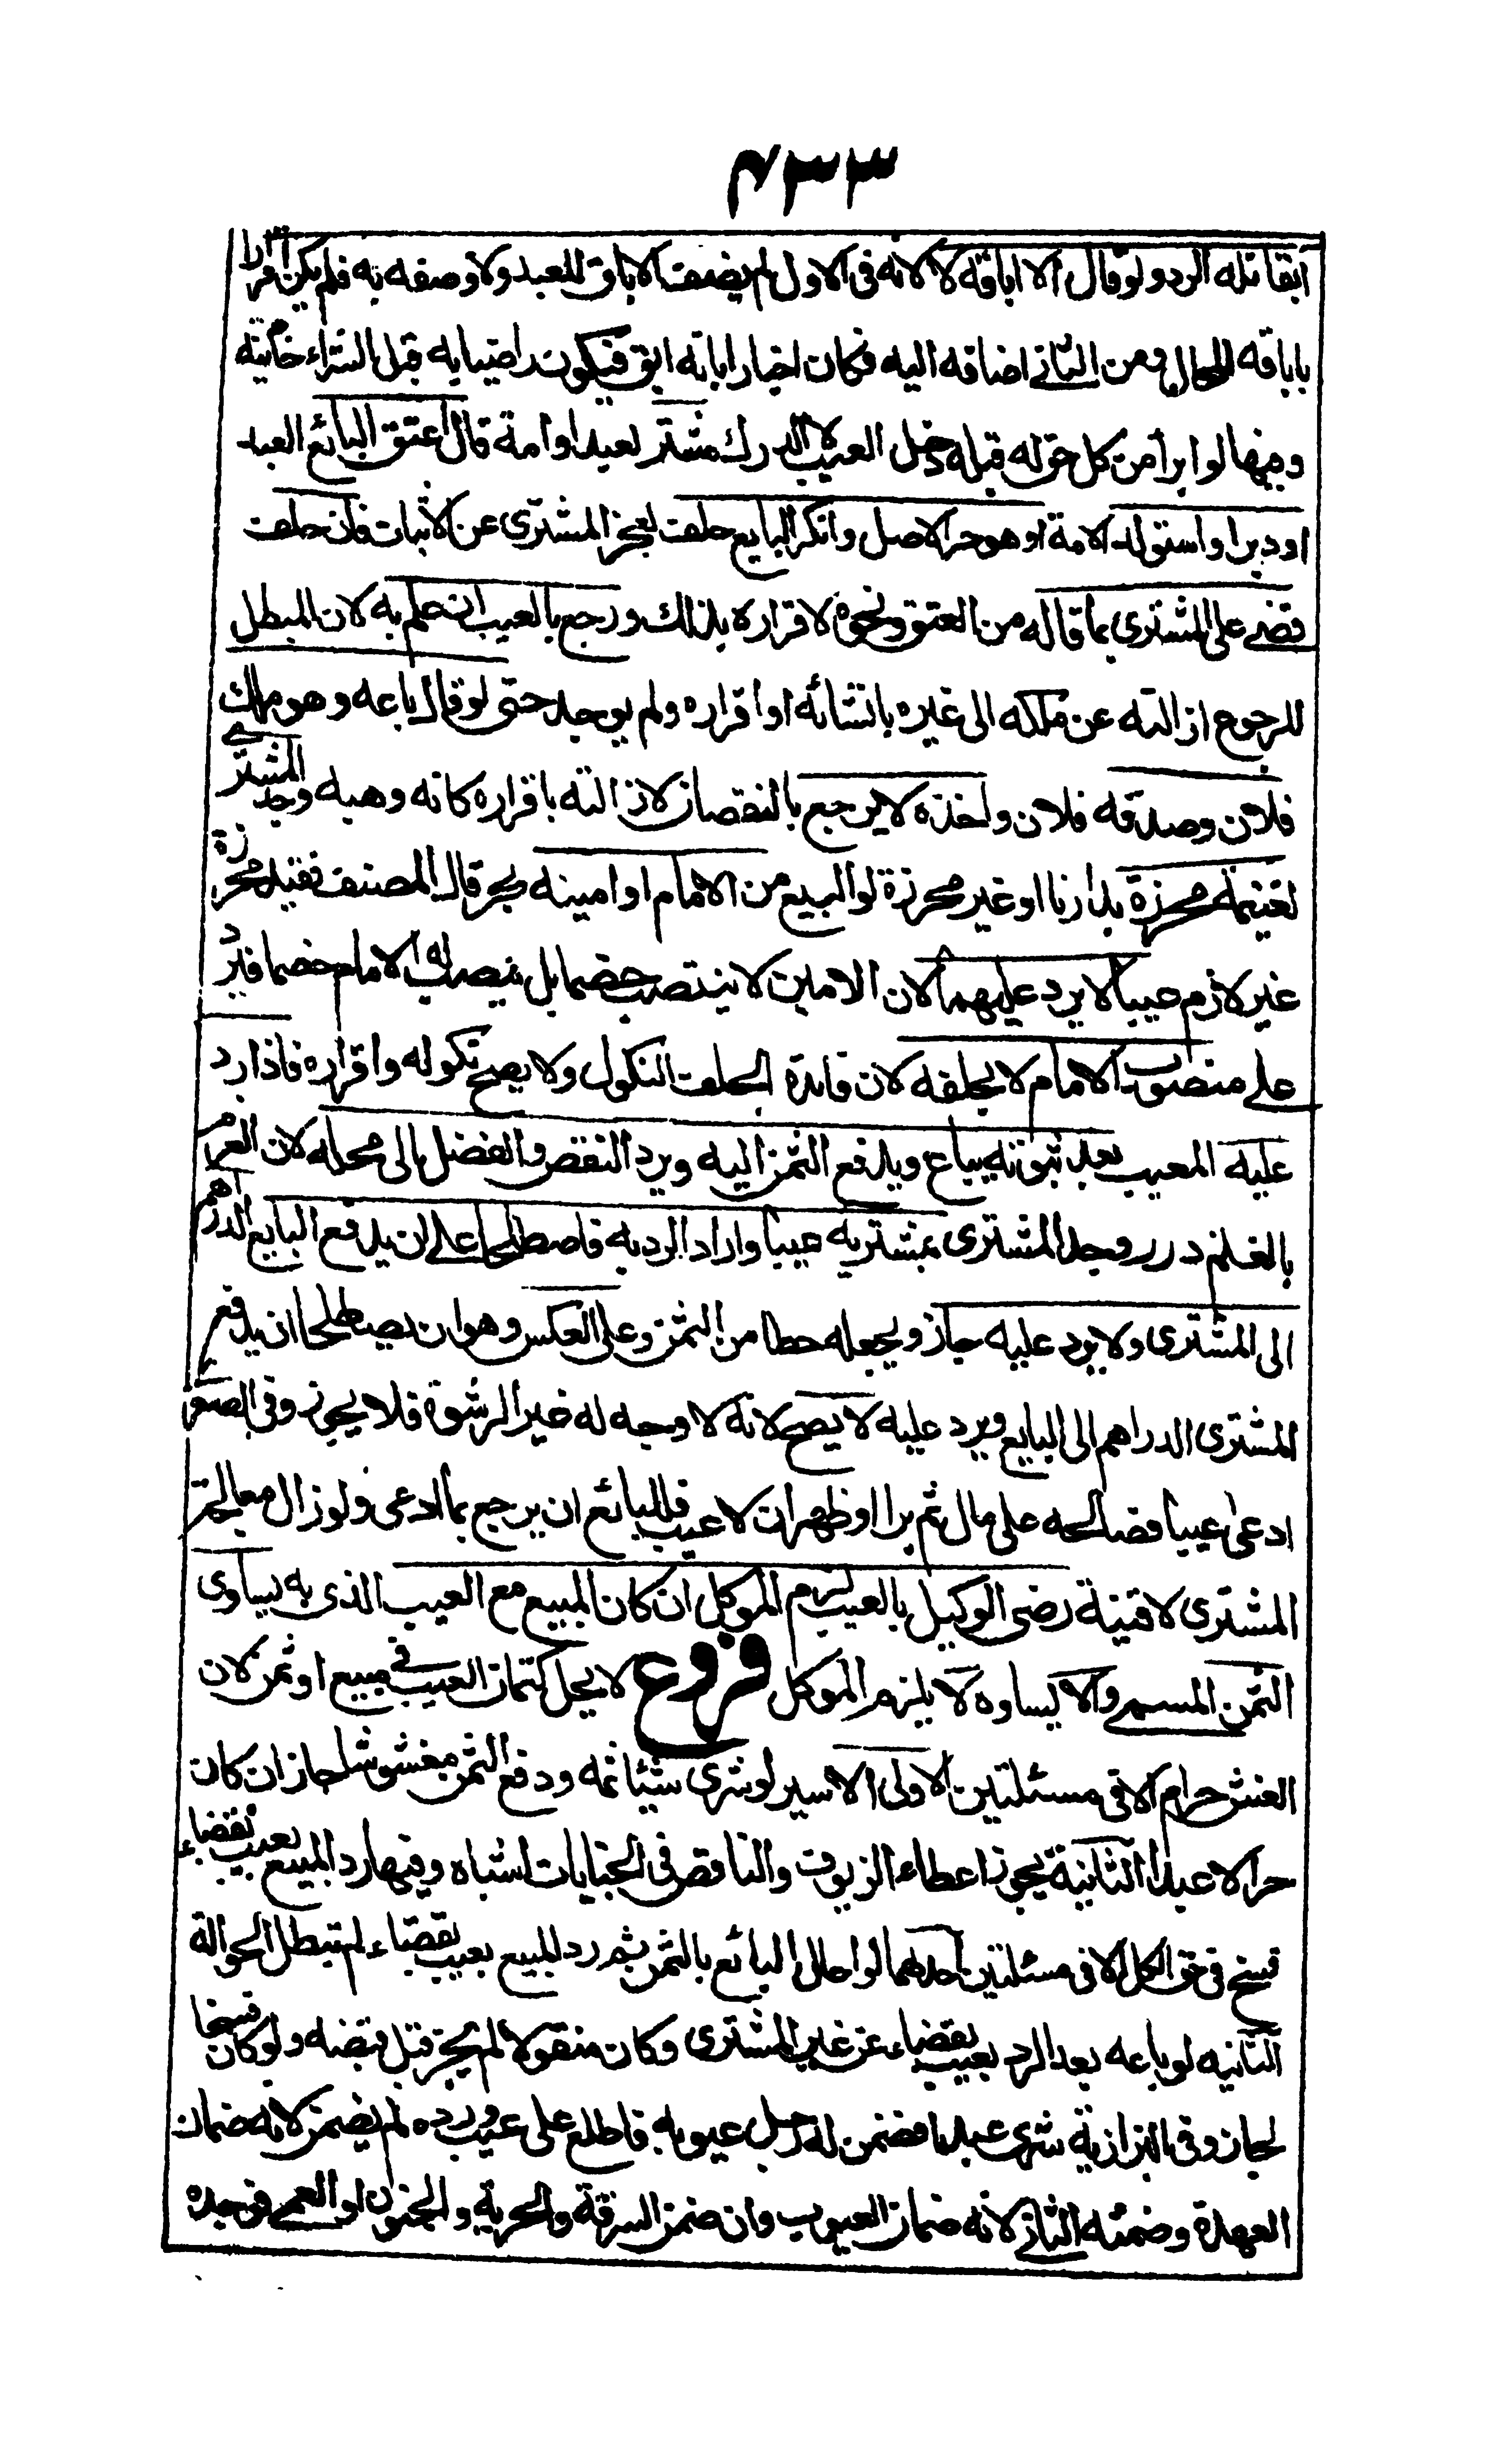 ٤٣٣
آبقا تله الرد ولو قال الا اباقه لا لانه فى الاول لم يضف الاباق للعبد ولا وصفه به فلم يكن اقرارا
باباقه للحال ومن الثانى اضافه اليه فكان اخبارا بانه ابق فيكون راضيا به قبل الشراء خانية
وفيها لو ابرأ من كل حق له قبله دخل العيب لا الدرك مشتر لعبد او امة قال اعتق البائع العبد
او دبر او استولد الامة او هو حر الاصل وانكر البايع حلف لعجز المشترى عن الاثبات فان حلف
قضى على المشترى بما قاله من العتق ونحوه لاقراره بذلك ورجع بالعيب ان علم به لان المبطل
للرجوع ازالته عن ملكه الى غيره بانشائه او اقراره ولم يوجد حتى لو قال باعه وهو ملك
فلان وصدقه فلان واخذه لا يرجع بالنقصان لازالته باقراره كانه وهبه وجد المشترى
لغنيمة محرزة بدارنا او غير محرزة لو البيع من الامام او امينه بحر قال المصنف فقيد محرزة
غير لازم عيبا لا يرد عليهما لان الامين لا ينتصب خصما بل ينصب له الامام خصما فيرد
على منصوب الامام لا يحلفه لان فايدة الحلف النكول ولا يصح نكوله واقراره فاذا رد
عليه المعيب بعد ثبوته يباع ويدفع الثمن اليه ويرد النقص والفضل الى محله لان الغرم
بالغنم درر وجد المشترى بمشتريه عيبا واراد الرد به فاصطلحا على ان يدفع البايع الدراهم
الى المشترى ولا يرد عليه جاز ويجعله حطا من الثمن وعلى العكس وهو ان يصطلحا ان يدفع
المشترى الدراهم الى البايع ويرد عليه لا يصح لانه لا وجه له غير الرشوة فلا يجوز وفى الصغرى
ادعى عيبا فصالحه على مال ثم برا او ظهر ان لا عيب فللبائع ان يرجع بما ادعى ولو زال معالجة
المشترى لا قنية رضى الوكيل بالعيب لزم الموكل ان كان المبيع مع العيب الذى به يساوى
الثمن المسمى والا يساوه لا يلزم الموكل فروع لا يحل كتمان العيب فى مبيع او ثمن لان
الغش حرام الا فى مسئلتين الاولى الاسير لو شرى شيئا ثمه ودفع الثمن مغشوشا جاز ان كان
حرا لا عبدا الثانية يجوز اعطاء الزيوف والناقص فى الجبايات اشباه وفيها رد المبيع بعيب بقضاء
فسخ فى حق الكل الا فى مسئلتين احدهما لو احال البائع بالثمن ثم رد المبيع بعيب بقضاء لم تبطل الحوالة
الثانيه لو باعه بعد الرد بعيب بقضاء عن غير المشترى وكان منقولا لم يجز قبل قبضه ولو كان فسخا
لجاز وفى البزازية شرى عبدا فضمن له رجل عيوبه فاطلع على عيب ورده لم يضمن لانه ضمان
العهدة وضمنه الثانى لانه ضمان العيوب وان ضمن السرقة والحرية والجنون او العمى فوجده